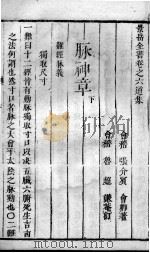 景岳全書卷之六道集
會稽 張介賓 會卿著
會稽 魯超 謙菴訂
脉神章下
難經脉義
獨取尺寸
一難曰十二經皆有動脉獨取寸口以决五臟六腑死生吉凶
之法何謂也然寸口者脉之大會手太陰之脉動也○二難